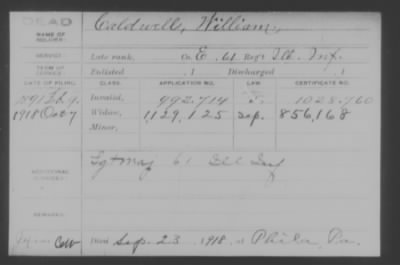 DEAD
NAME OF SOLDIER:
Caldwell, William,
SERVICE:
Late rank, Co. E, 61 Reg't Ill. Inf.
TERM OF SERVICE:
Enlisted , 1 Discharged , 1
DATE OF FILING. CLASS. APPLICATION NO. LAW. CERTIFICATE NO.
1891 Feb 9. Invalid, 992.714 1028.760
1918 Oct 7 Widow, 1,129,125 856,168
Minor,
ADDITIONAL SERVICES:
Sgt Maj 61 Ill Inf
REMARKS:
Died Sep. 23 1918, at Phila, Pa.